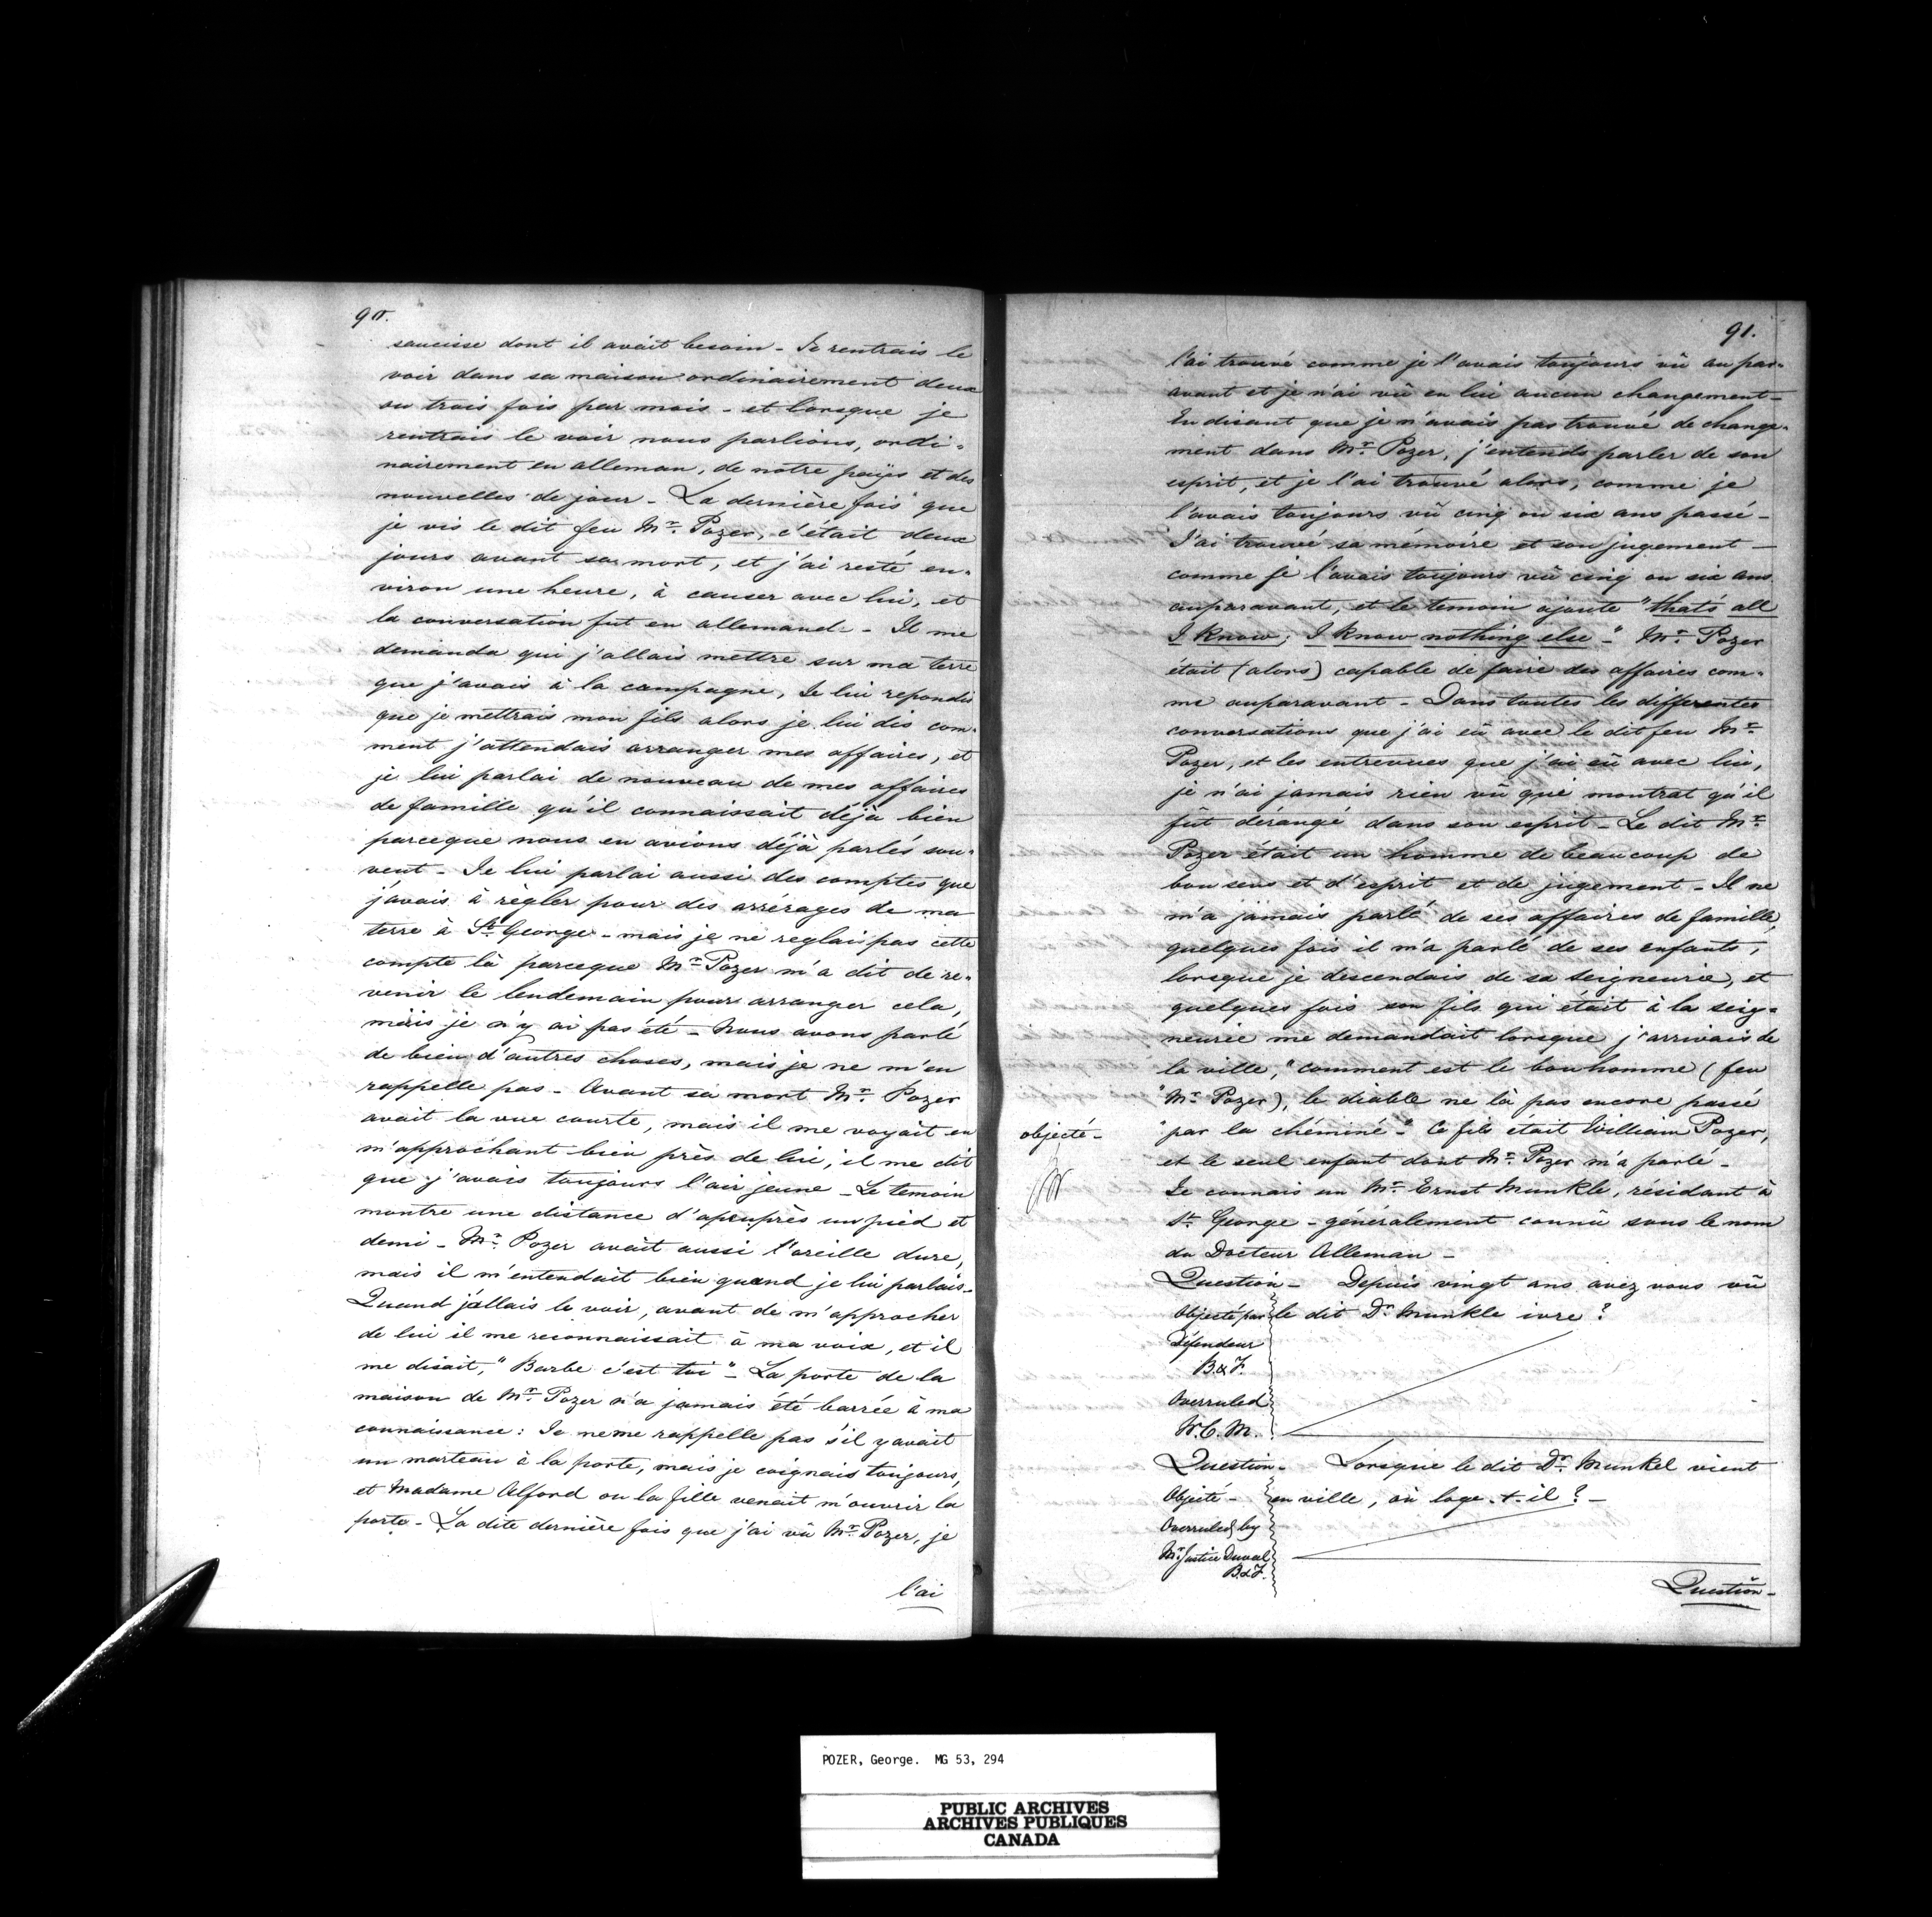 90.
saucisse dont il avait besoin - Je rentrais le
voir dans sa maison ordinairement deux
ou trois fois par mois - et lorsque je
rentrais le voir nous parlions, ordi=
nairement en alleman, de notre païs et des
nouvelles de jour - La dernière fois que
je vis le dit feu Mr. Pozer, c'était deux
jours avant sa mort, et j'ai resté en=
viron une heure, à causer avec lui, et
la conversation fut en allemand - Il me
demanda qui j'allais mettre sur ma terre
que j'avais à la campagne, Je lui repondis
que je mettrais mon fils alors je lui dis com=
ment j'attendais arranger mes affaires, et
je lui parlai de nouveau de mes affaires
de famille qu'il connaissait déjà bien
parceque nous en avions déjà parlés sou=
vent - Je lui parlai aussi des comptes que
j'avais à règler pour des arrérages de ma
terre à St. George - mais je ne reglais pas cette
compte là parceque Mr. Pozer m'a dit de re=
venir le lendemain pour arranger cela,
mais je n'y ai pas été - Nous avons parlé
de bien d'autres choses, mais je ne m'en
rappelle pas - Avant sa mort Mr. Pozer
avait la vue courte, mais il me voyait en
m'approchant bien près de lui, il me dit
que j'avais toujours l'air jeune - Le temoin
montre une distance d'apeuprès un pied et
demi - Mr. Pozer avait aussi l'oreille dure,
mais il m'entendait bien quand je lui parlais -
Quand j'allais le voir, avant de m'approcher
de lui il me reconnaissait à ma voix, et il
me disait, "Barbe c'est toi" - La porte de la
maison de Mr. Pozer n'a jamais été barrée à ma
connaissance: Je ne me rappelle pas s'il y avait
un marteau à la porte, mais je coignais toujours,
et Madame Alford ou la fille venait m'ouvrir la
porte - La dite dernière fois que j'ai vû Mr. Pozer, je
l'ai
91.
l'ai trouvé comme je l'avais toujours vû au par=
avant et je n'ai vû en lui aucun changement -
En disant que je n'avais pas trouvé de change=
ment dans Mr. Pozer, j'entends parler de son
esprit, et je l'ai trouvé alors, comme je
l'avais toujours vû cinq ou six ans passé -
J'ai trouvé sa mémoire et son jugement -
comme je l'avais toujours vû cinq ou six ans
auparavant, et le temoin ajoute "that's all
I know; I know nothing else -" Mr. Pozer
était (alors) capable de faire des affaires com=
me auparavant - Dans toutes les differentes
conversations que j'ai eû avec le dit feu Mr.
Pozer, et les entrevues que j'ai eû avec lui,
je n'ai jamais rien vû qui montrat qu'il
fût dérangé dans son esprit - Le dit Mr.
Pozer était un homme de beaucoup de
bon sens et d'esprit et de jugement - Il ne
m'a jamais parlé de ses affaires de famille,
quelques fois il m'a parlé de ses enfants,
lorsque je descendais de sa seigneurie, et
quelques fois son fils qui était à la seig=
neurie me demandait lorsque j'arrivais de
la ville, "comment est le bonhomme (feu
"Mr. Pozer), le diable ne là pas encore passé
objecté -
"par la chéminé -" Ce fils était William Pozer,
et le seul enfant dont Mr. Pozer m'a parlé -
Je connais un Mr. Ernst Munkle, résidant à
St. George - généralement connû sous le nom
du Docteur Alleman -
Question - Depuis vingt ans avez vous vû
le dit Dr. Munkle ivre?
Objecté par
Défendeur
B. & F.
Overruled
W. C. M.
Question - Lorsque le dit Dr. Munkel vient
en ville, où loge-t-il? -
Objecté -
Overruled by
Mr. Justice Duval
B. & F.
Question -
POZER, George. MG 53, 294
PUBLIC ARCHIVES
ARCHIVES PUBLIQUES
CANADA